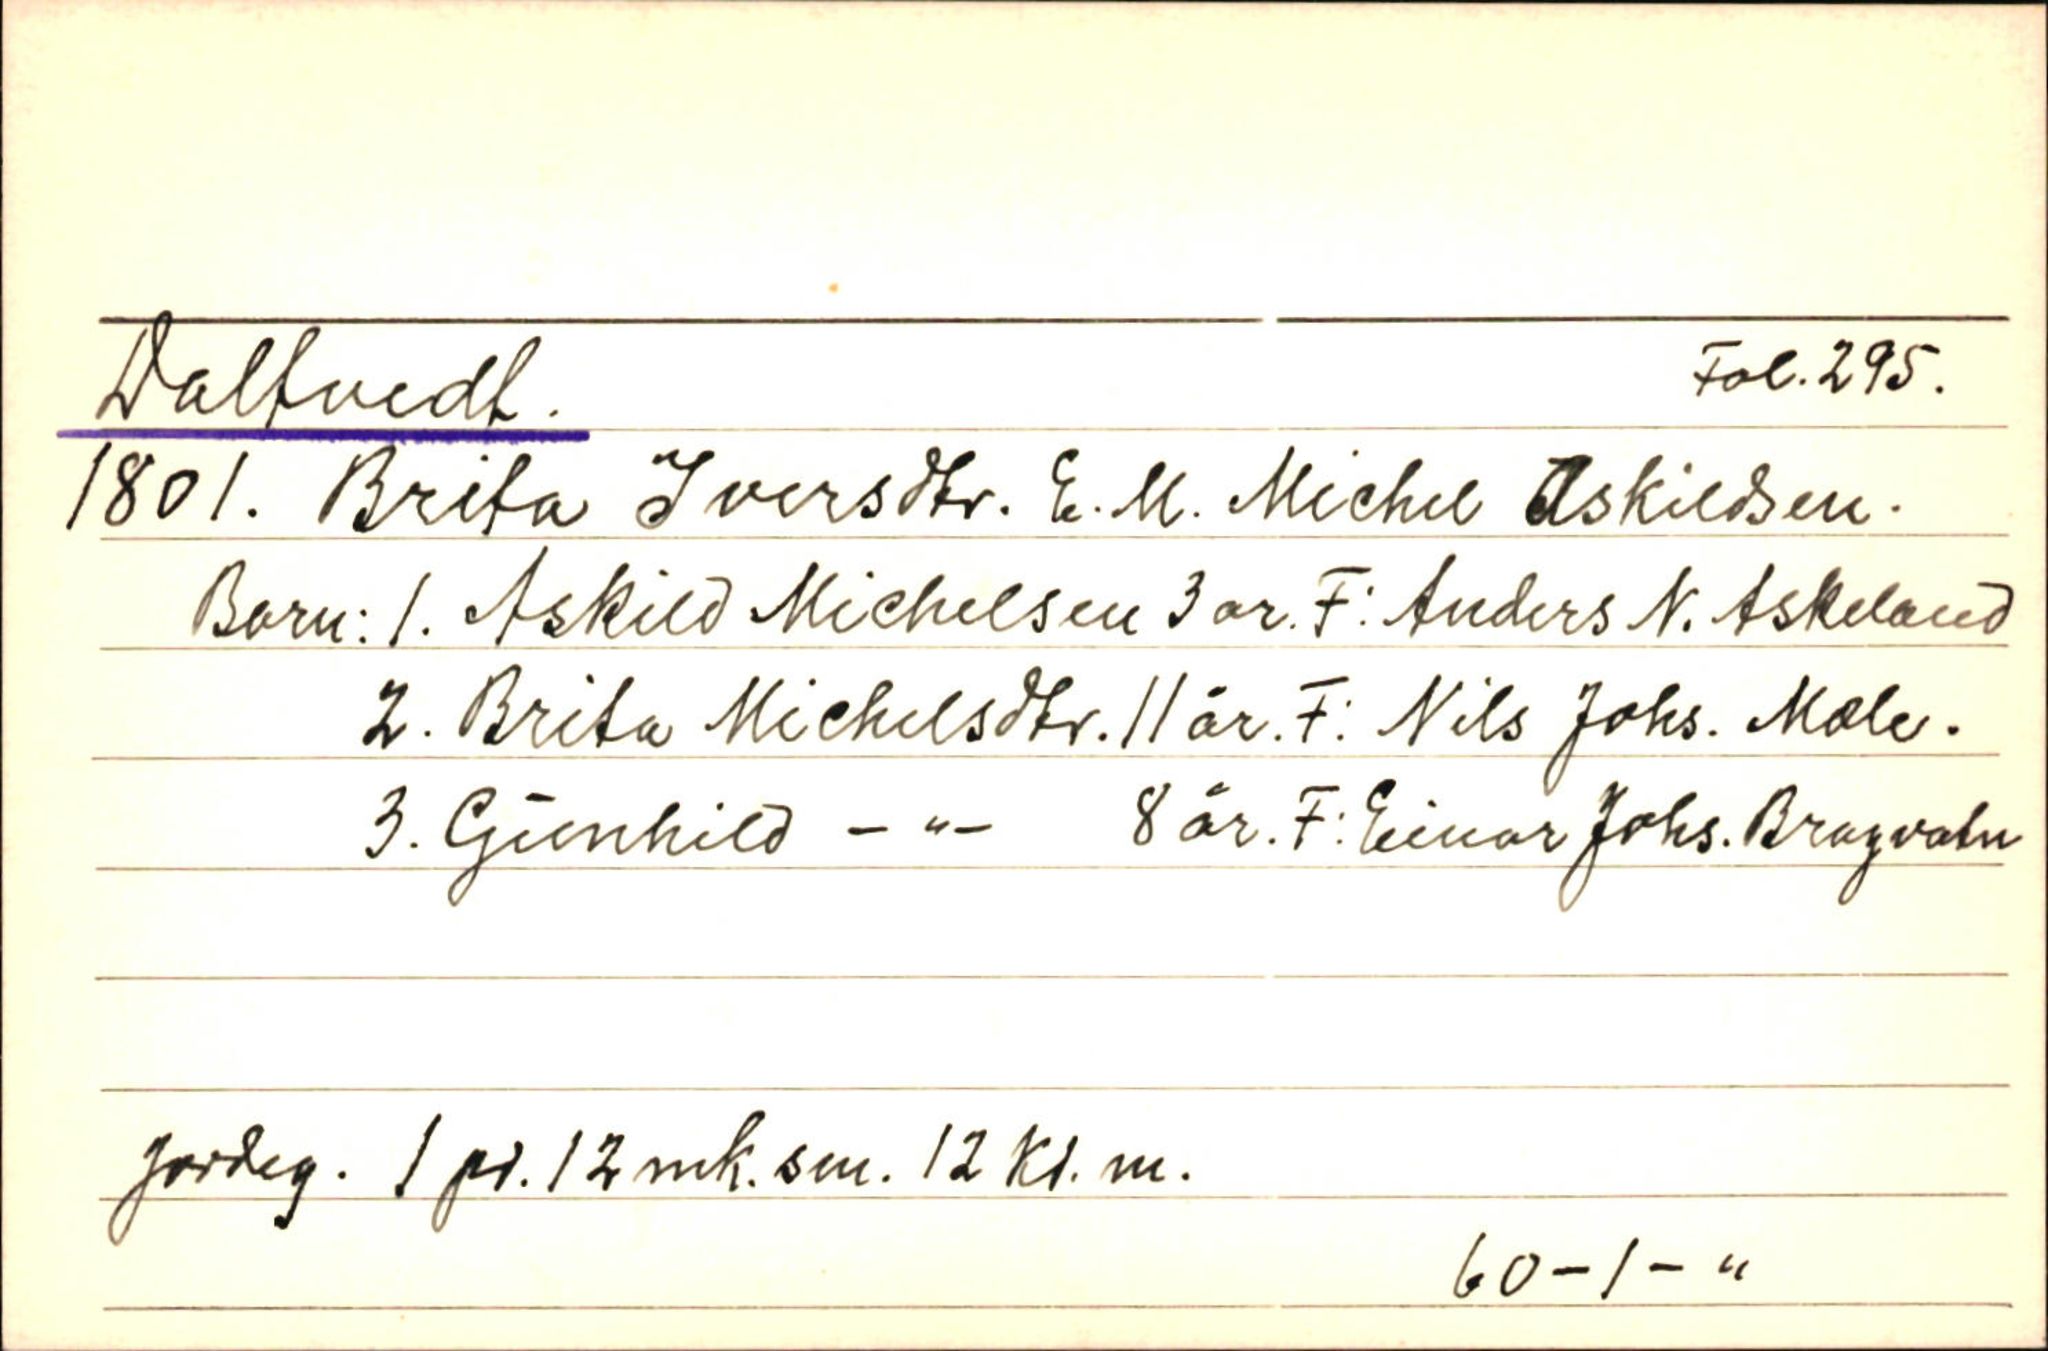 Daltvedt. Fol. 295.
1801. Brita Iversdtr. E. M. Michel Askildsen.
Born: 1. Askild Michelsen 3 ar. F: Anders N. Askeland
2. Brita Michelsdtr. 11 år. F: Nils Johs. Mæle.
3. Gunhild – " – 8 år. F: Einar Johs. Bragvatn
Jordeg. 1 pd. 12 mk. sm. 12 Kl. m.
60 – 1 – "